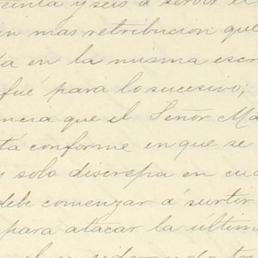 reinta y seis a servir el
en mas retribucion que
ta en la misma escr
fué para lo sucesivo;
ncia que el Señor Ma
ta conforme en que se
y solo discrepa en cua
debe comenzar á surtir
para atacar la últim